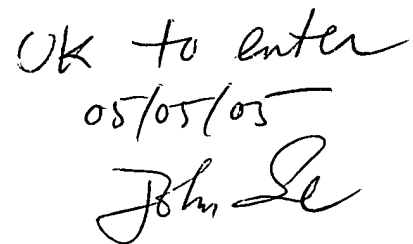 OK to enter
05/05/05
John Le